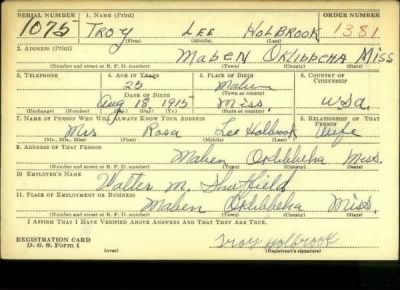 SERIAL NUMBER 1. NAME (Print) ORDER NUMBER
1075 TROY LEE HOLBROOK 1381
(First) (Middle) (Last)
2. ADDRESS (Print)
MABEN OKLIBBEHA MISS
(Number and street or R. F. D. number) (Town) (County) (State)
3. TELEPHONE 4. AGE IN YEARS 5. PLACE OF BIRTH 6. COUNTRY OF CITIZENSHIP
25 Maben
DATE OF BIRTH
Aug 18, 1915 Miss. USA.
(Exchange) (Number) (Mo.) (Day) (Yr.) (State or country)
7. NAME OF PERSON WHO WILL ALWAYS KNOW YOUR ADDRESS 8. RELATIONSHIP OF THAT PERSON
Mrs Rosa Lee Holbrook Wife
(Mr., Mrs., Miss) (First) (Middle) (Last)
9. ADDRESS OF THAT PERSON
Maben Oklibbeha Miss.
(Number and street or R. F. D. number) (Town) (County) (State)
10. EMPLOYER'S NAME
Walter M.
11. PLACE OF EMPLOYMENT OR BUSINESS
Maben Oklibbeha Miss.
(Number and street or R. F. D. number) (Town) (County) (State)
I AFFIRM THAT I HAVE VERIFIED ABOVE ANSWERS AND THAT THEY ARE TRUE.
REGISTRATION CARD
D. S. S. Form 1 Troy Holbrook
(over) (Registrant's signature)